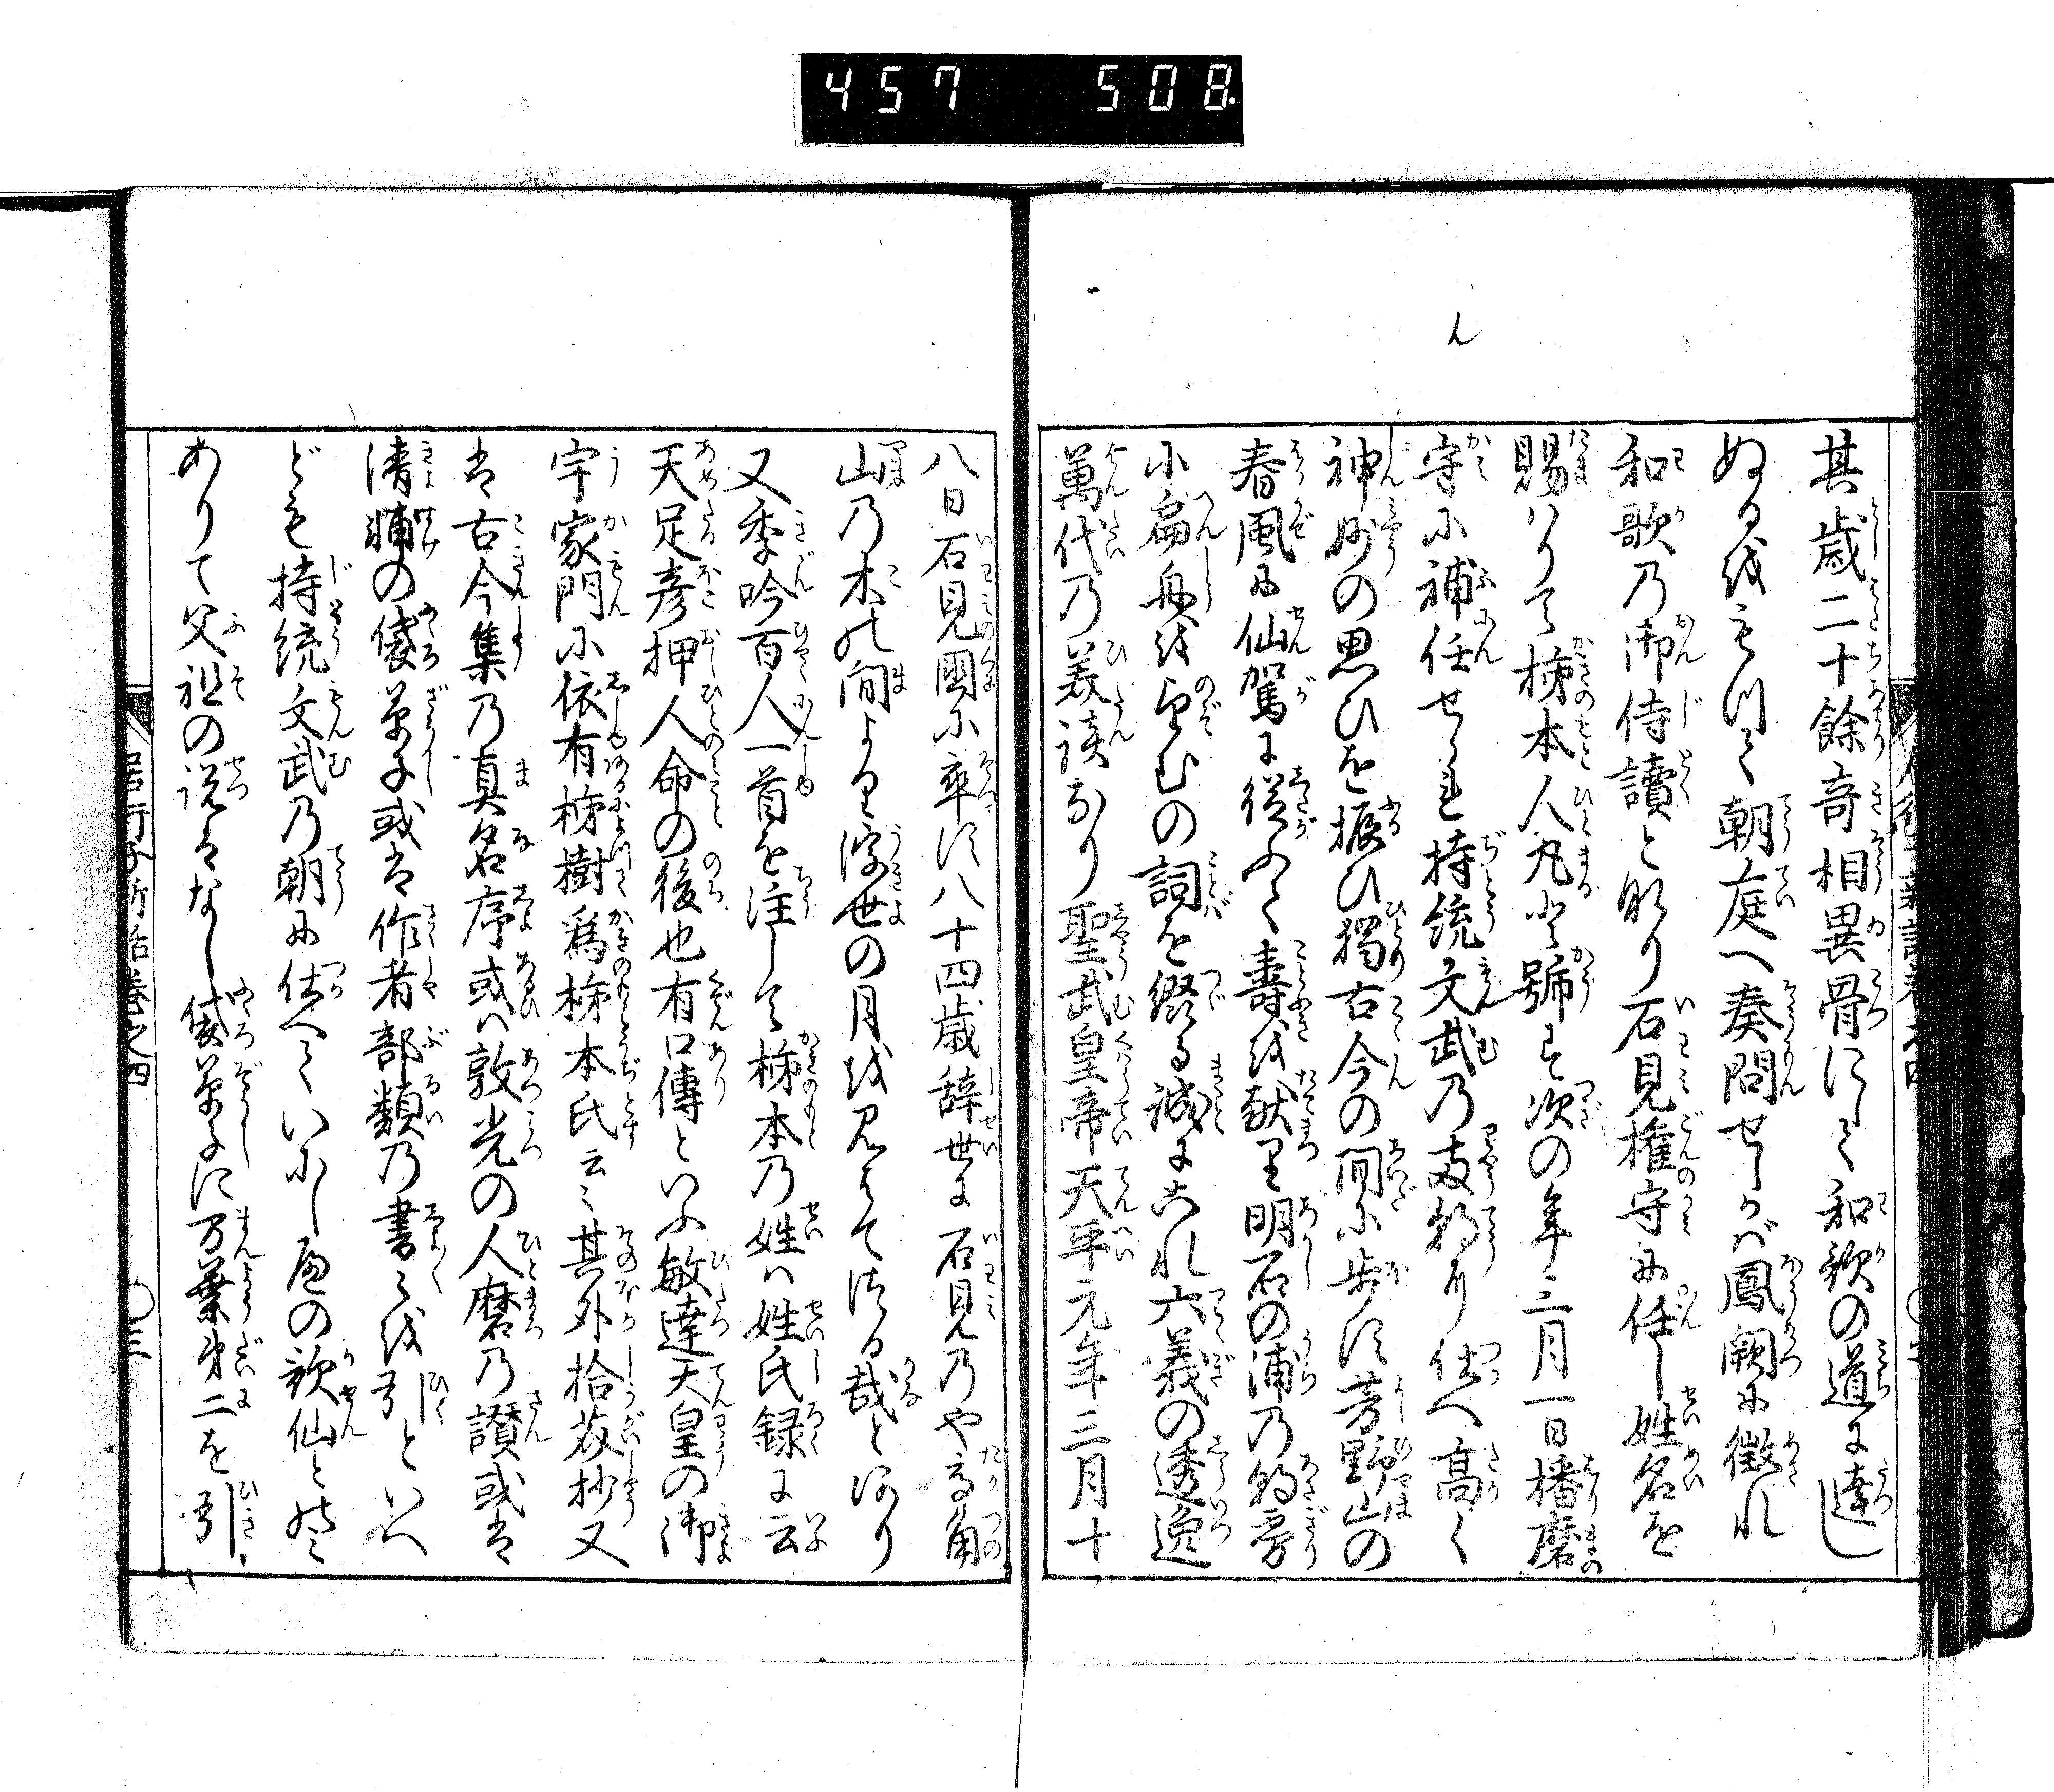 457 508.
其歳二十餘奇相異骨にして和歌の道に達し
ぬるをもつて朝庭へ奏問せしかば鳳闕に徴れ
和歌乃御侍讀と成り石見權守に任し姓名を
賜はりて柹本人丸と號す次の年三月一日播磨
守に補任せられ持統文武乃両朝に仕へ高く
神妙の思ひを振ひ獨古今の間に歩す芳野山の
春風に仙駕に從ふて壽を献り明石の浦乃朝霧
に扁舟を望むの詞を綴る誠にこれ六義の透逸
萬代乃美談なり聖武皇帝天平元年三月十
八日石見國に卒す八十四歳辞世に石見乃や高角
山乃木の間より浮世の月を見はてつる哉とあり
又季吟百人一首を注して柹本乃姓は姓氏録に云
天足彦押人命の後也有口傳といふ敏達天皇の御
宇家門に依有柹樹爲柹本氏云〻其外拾芥抄又
は古今集乃真名序或は敦光の人磨乃讃或は
清輔の袋草子或は作者部類乃書〻を引といへ
ども持統文武乃朝に仕へていにしへの歌仙とのミ
ありて父祖の説はなし袋草子に万葉第二を引
居行子新話巻之四 〇三